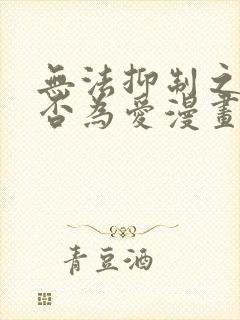 無法抑制之
否為愛漫畫
青豆酒